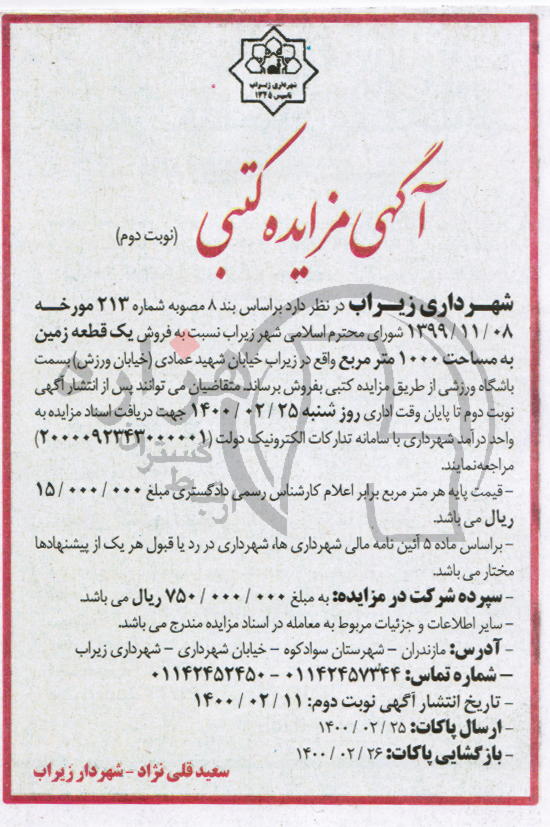 شهرداری زیراب
تاسیس ۱۳۴۵
آگهی مزایده کتبی
(نوبت دوم)
شهرداری زیراب در نظر دارد براساس بند ۸ مصوبه شماره ۲۱۳ مورخه
۱۳۹۹/۱۱/۰۸ شورای محترم اسلامی شهر زیراب نسبت به فروش یک قطعه زمین
به مساحت ۱۰۰۰ متر مربع واقع در زیراب خیابان شهید عمادی (خیابان ورزش) بسمت
باشگاه ورزشی از طریق مزایده کتبی بفروش برساند. متقاضیان می توانند پس از انتشار آگهی
نوبت دوم تا پایان وقت اداری روز شنبه ۱۴۰۰/۰۲/۲۵ جهت دریافت اسناد مزایده به
واحد درآمد شهرداری با سامانه تدارکات الکترونیک دولت (۲۰۰۰۰۹۲۳۴۳۰۰۰۰۰۱)
مراجعه نمایند.
- قیمت پایه هر متر مربع برابر اعلام کارشناس رسمی دادگستری مبلغ ۱۵/۰۰۰/۰۰۰
ریال می باشد.
- براساس ماده ۵ آئین نامه مالی شهرداری ها، شهرداری در رد یا قبول هر یک از پیشنهادها
مختار می باشد.
- سپرده شرکت در مزایده: به مبلغ ۷۵۰/۰۰۰/۰۰۰ ریال می باشد.
- سایر اطلاعات و جزئیات مربوط به معامله در اسناد مزایده مندرج می باشد.
- آدرس: مازندران - شهرستان سوادکوه - خیابان شهرداری - شهرداری زیراب
- شماره تماس: ۰۱۱۴۲۴۵۷۳۴۴ - ۰۱۱۴۲۴۵۲۴۵۰
- تاریخ انتشار آگهی نوبت دوم: ۱۴۰۰/۰۲/۱۱
- ارسال پاکات: ۱۴۰۰/۰۲/۲۵
- بازگشایی پاکات: ۱۴۰۰/۰۲/۲۶
سعید قلی نژاد - شهردار زیراب
هزاره